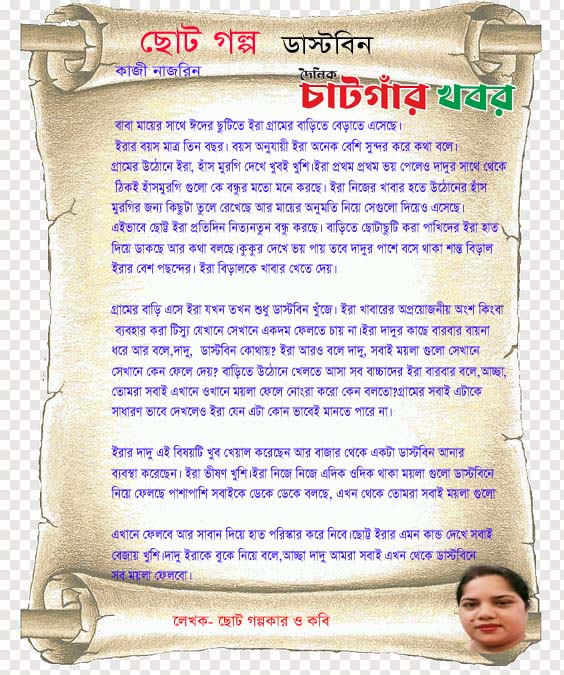 ছোট গল্প ডাস্টবিন
কাজী নাজরিন
দৈনিক
চাটগাঁর খবর
বাবা মায়ের সাথে ঈদের ছুটিতে ইরা গ্রামের বাড়িতে বেড়াতে এসেছে।
ইরার বয়স মাত্র তিন বছর। বয়স অনুযায়ী ইরা অনেক বেশি সুন্দর করে কথা বলে।
গ্রামের উঠোনে ইরা, হাঁস মুরগি দেখে খুবই খুশি।ইরা প্রথম প্রথম ভয় পেলেও দাদুর সাথে থেকে
ঠিকই হাঁসমুরগি গুলো কে বন্ধুর মতো মনে করছে। ইরা নিজের খাবার হতে উঠোনের হাঁস
মুরগির জন্য কিছুটা তুলে রেখেছে আর মায়ের অনুমতি নিয়ে সেগুলো দিয়েও এসেছে।
এইভাবে ছোট্ট ইরা প্রতিদিন নিত্যনতুন বন্ধু করছে। বাড়িতে ছোটাছুটি করা পাখিদের ইরা হাত
দিয়ে ডাকছে আর কথা বলছে।কুকুর দেখে ভয় পায় তবে দাদুর পাশে বসে থাকা শান্ত বিড়াল
ইরার বেশ পছন্দের। ইরা বিড়ালকে খাবার খেতে দেয়।
গ্রামের বাড়ি এসে ইরা যখন তখন শুধু ডাস্টবিন খুঁজে। ইরা খাবারের অপ্রয়োজনীয় অংশ কিংবা
ব্যবহার করা টিস্যু যেখানে সেখানে একদম ফেলতে চায় না।ইরা দাদুর কাছে বারবার বায়না
ধরে আর বলে,দাদু, ডাস্টবিন কোথায়? ইরা আরও বলে দাদু, সবাই ময়লা গুলো সেখানে
সেখানে কেন ফেলে দেয়? বাড়িতে উঠোনে খেলতে আসা সব বাচ্চাদের ইরা বারবার বলে,আচ্ছা,
তোমরা সবাই এখানে ওখানে ময়লা ফেলে নোংরা করো কেন বলতো?গ্রামের সবাই এটাকে
সাধারণ ভাবে দেখলেও ইরা যেন এটা কোন ভাবেই মানতে পারে না।
ইরার দাদু এই বিষয়টি খুব খেয়াল করেছেন আর বাজার থেকে একটা ডাস্টবিন আনার
ব্যবস্থা করেছেন। ইরা ভীষণ খুশি।ইরা নিজে নিজে এদিক ওদিক থাকা ময়লা গুলো ডাস্টবিনে
নিয়ে ফেলছে পাশাপাশি সবাইকে ডেকে ডেকে বলছে, এখন থেকে তোমরা সবাই ময়লা গুলো
এখানে ফেলবে আর সাবান দিয়ে হাত পরিস্কার করে নিবে।ছোট্ট ইরার এমন কান্ড দেখে সবাই
বেজায় খুশি।দাদু ইরাকে বুকে নিয়ে বলে,আচ্ছা দাদু আমরা সবাই এখন থেকে ডাস্টবিনে
সব ময়লা ফেলবো।
লেখক- ছোট গল্পকার ও কবি